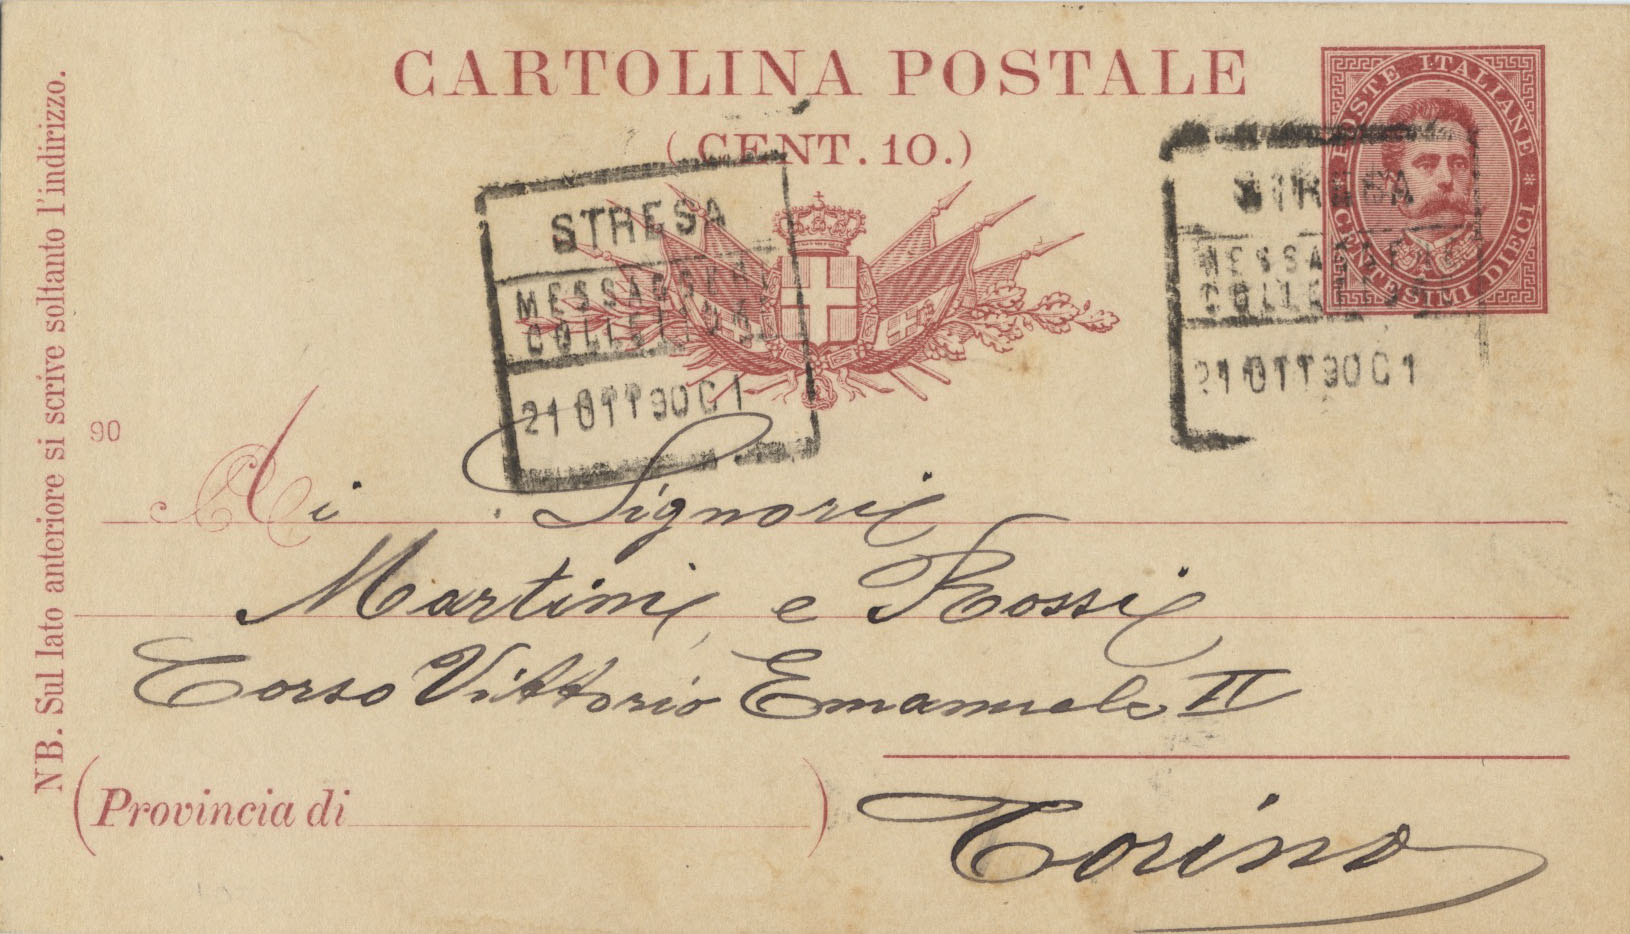 CARTOLINA POSTALE
(CENT. 10.)
POSTE ITALIANE
CENTESIMI DIECI
STRESA
MESSAGGERI
COLLETTORI
21 OTT 90 C1
STRESA
MESSAGGERI
COLLETTORI
21 OTT 90 C1
NB. Sul lato anteriore si scrive soltanto l'indirizzo.
90
Ai Signori
Martini e Rossi
Corso Vittorio Emanuele II
(Provincia di )
Torino